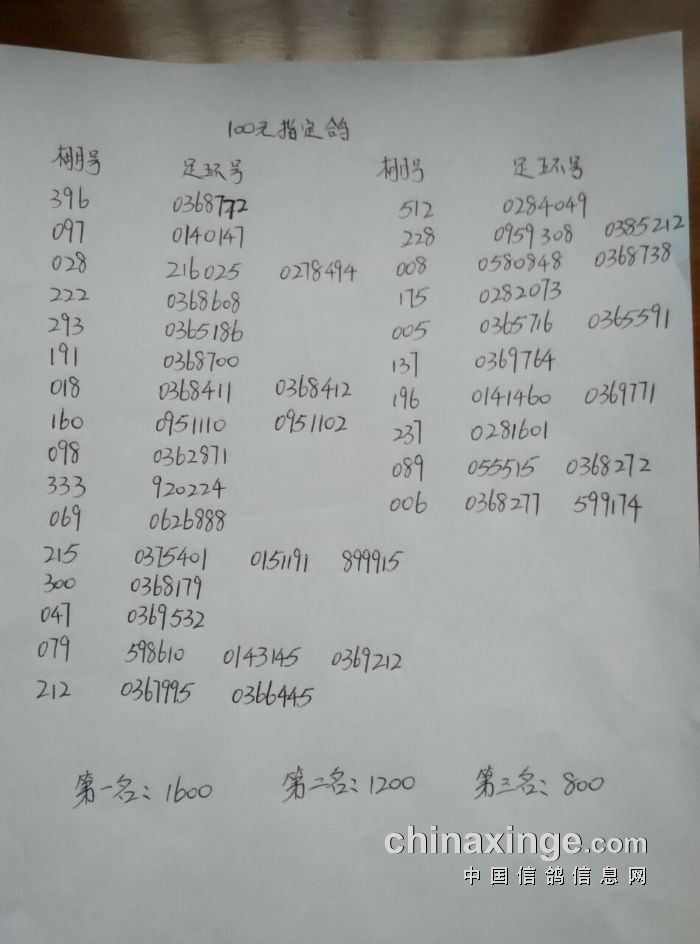 100元指定鸽
棚号 足环号 棚号 足环号
396 0368772 512 0284049
097 0140147 228 0959308 0385212
028 216025 0278494 008 0580848 0368738
222 0368608 175 0282073
293 0365186 005 0365716 0365591
191 0368700 137 0369764
018 0368411 0368412 196 0141460 0369771
160 0951110 0951102 237 0281601
098 0362871 089 055515 0368272
333 920224 006 0368277 599174
069 0626888
215 0375401 0151191 899915
300 0368179
047 0369532
079 598610 0143145 0369212
212 0367995 0366445
第一名：1600 第二名：1200 第三名：800
chinaxinge.com
中国信鸽信息网